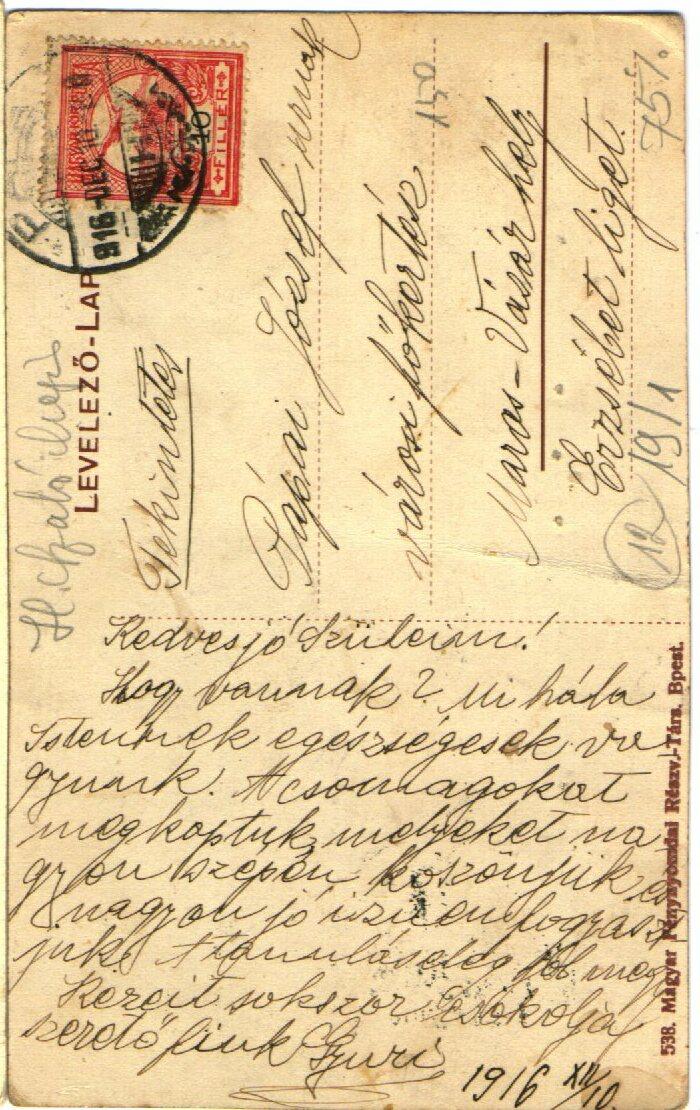 LEVELEZŐ-LAP
FILLÉR
10
916 DEC 10
Tekintetes
Pápai József urnak
városi főkertész
Maros-Vásárhely
Erzsébet liget.
150
75%.
19/1
12
Kedves jó Szüleim!
Hogy vannak? Mi hála
Istennek egészségesek va
gyunk. A csomagokat
megkaptuk, melyeket na
gyon szépen köszönjük és
nagyon jó izüen fogyasz
juk. A tanulás elég jól megy
Kezeit sokszor csókolja
szerető fiuk Gyuri
1916 XII/10
538. Magyar Fénynyomdai Részv.-Társ. Bpest.